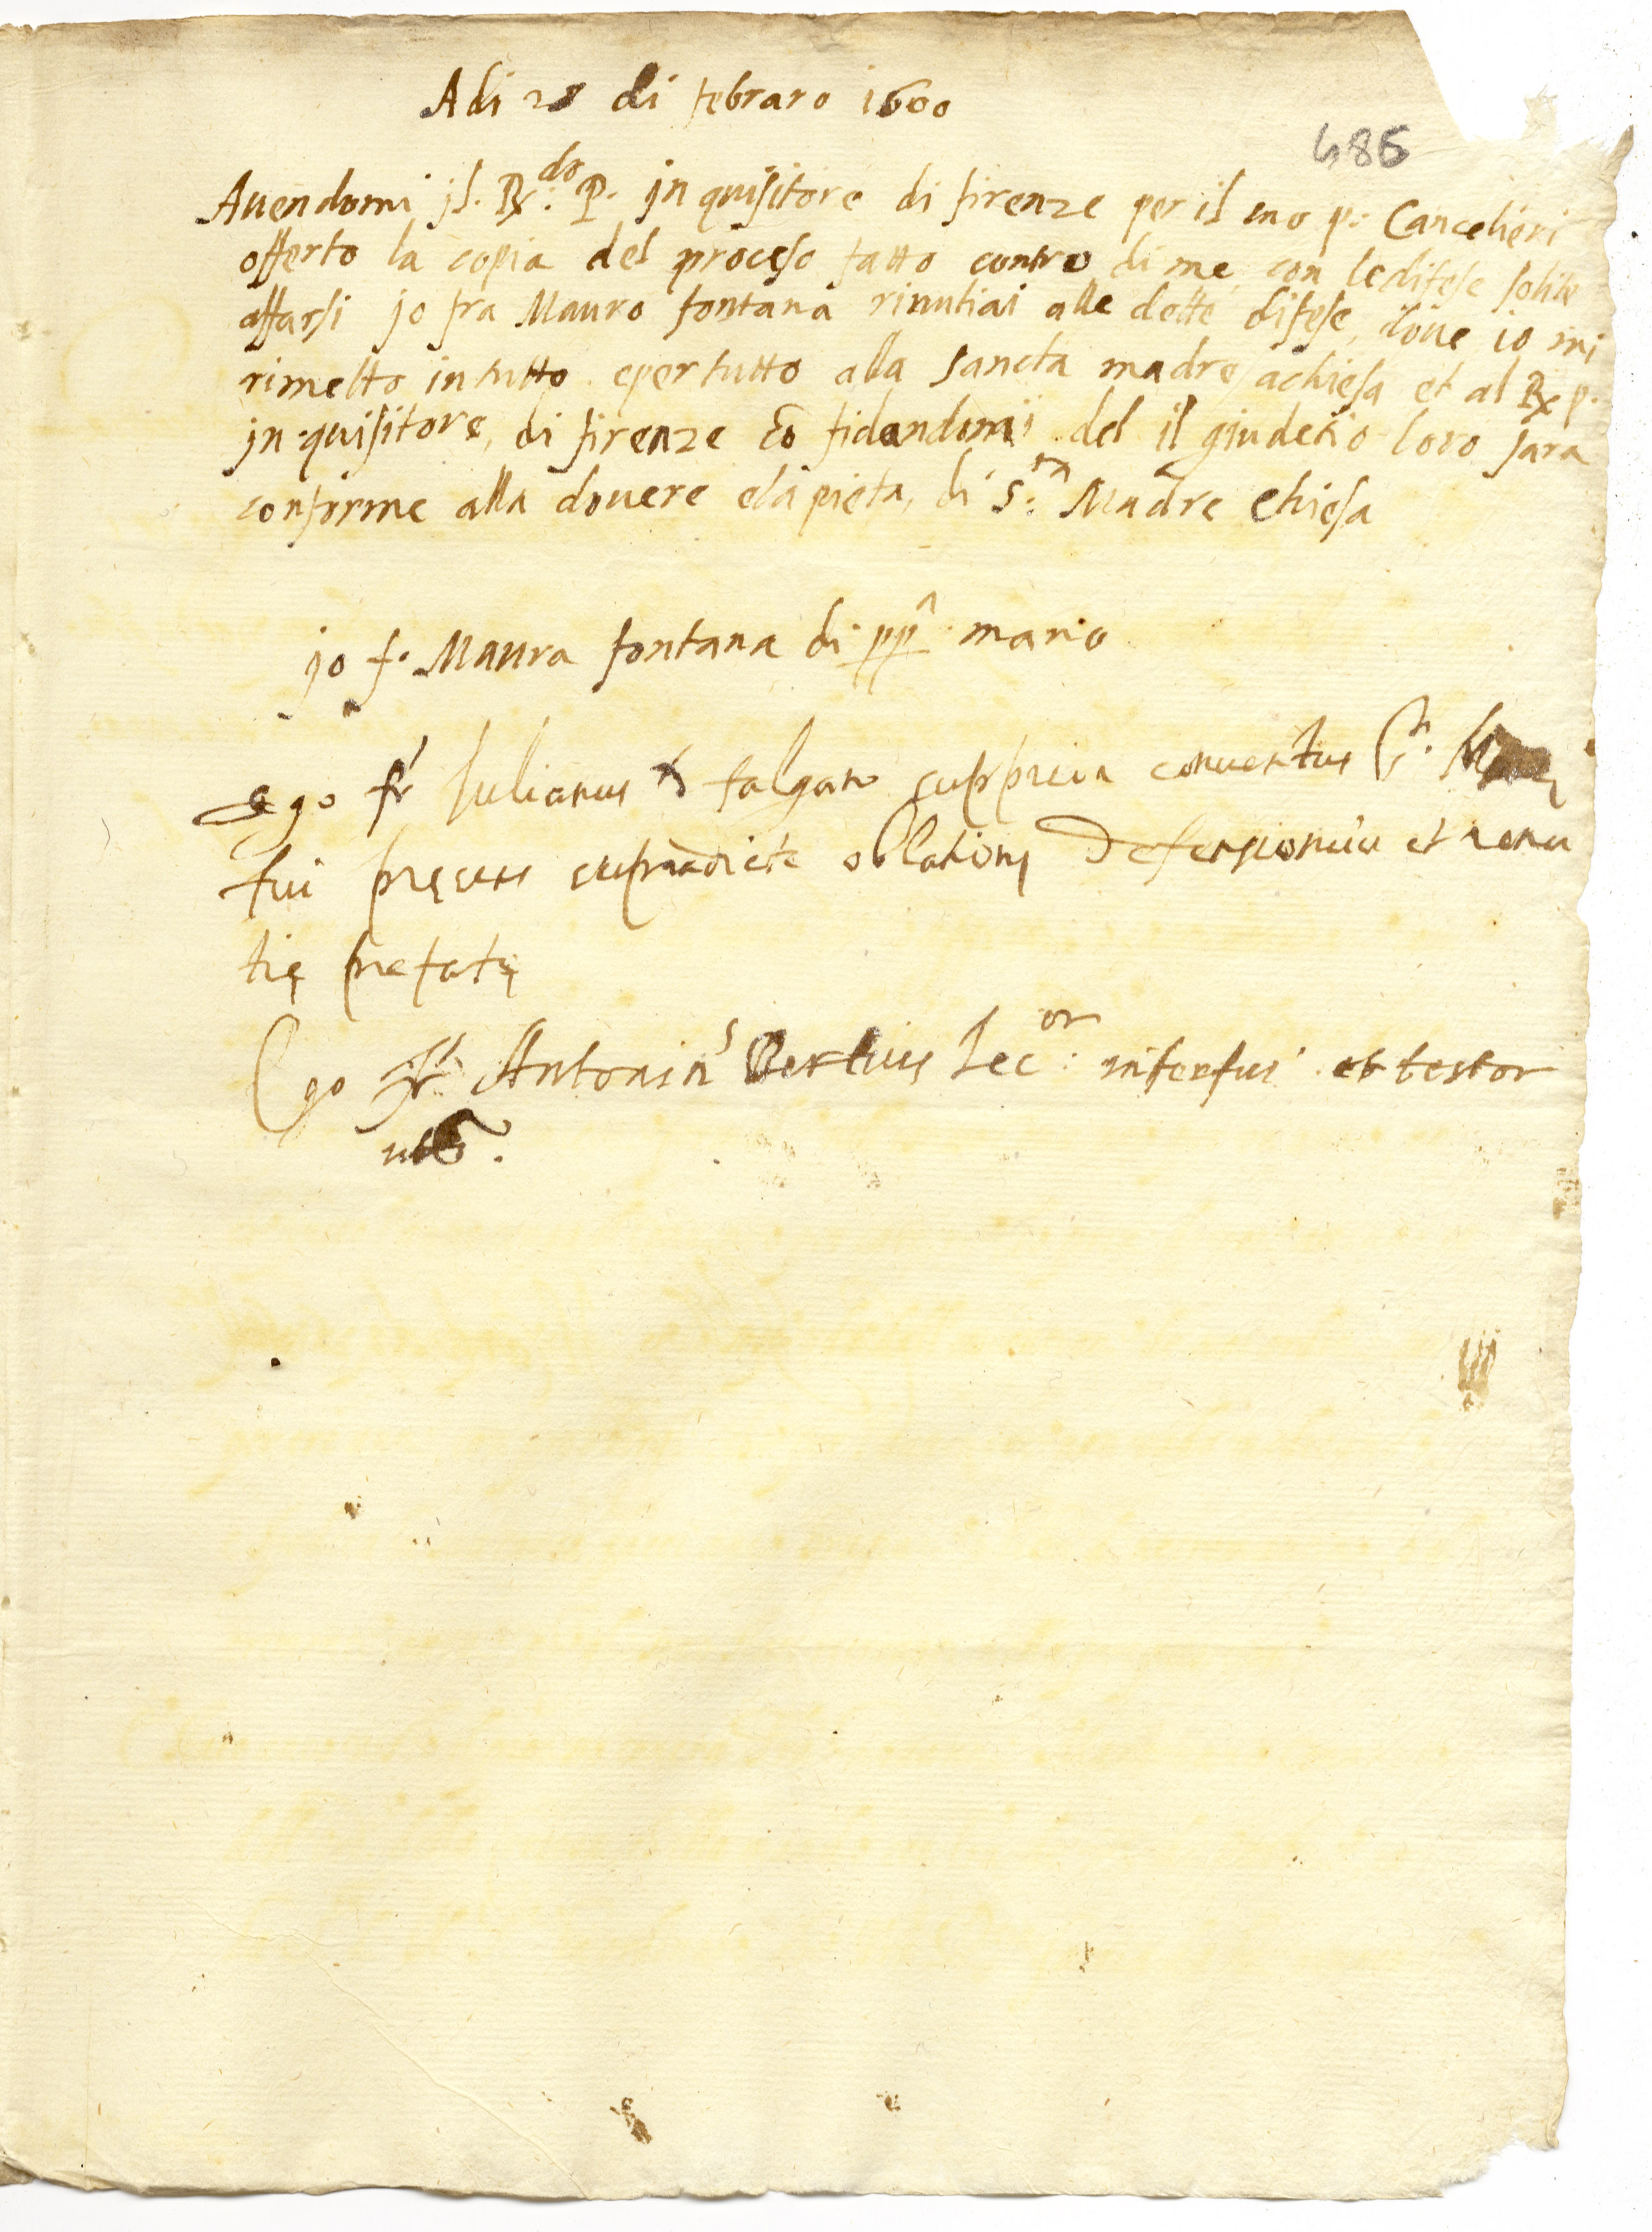 A di 28 di febraro 1600
486
Auendomi il. R.do P. jn quisitore di firenze per il suo p: Cancelieri
offerto la copia del proceso fatto contro di me con le difese solite
affarsi jo fra Mauro fontana rinutiai alle dette difese, doue io mi
rimetto in tutto epertutto alla sancta madre achiesa et al R p.
jn quisitore, di firenze cõ fidandomi del il giudetio loro sara
conforme alla douere ela pieta, di S.ta Madre chiesa
jo f. Maura fontana di pp mano
ego fr Iulianus falgan conuentus S.
fui supradicte oblationi defensionũ et renu
tię prefatę
Ego Fr Antonins Lec.or interfui et testor